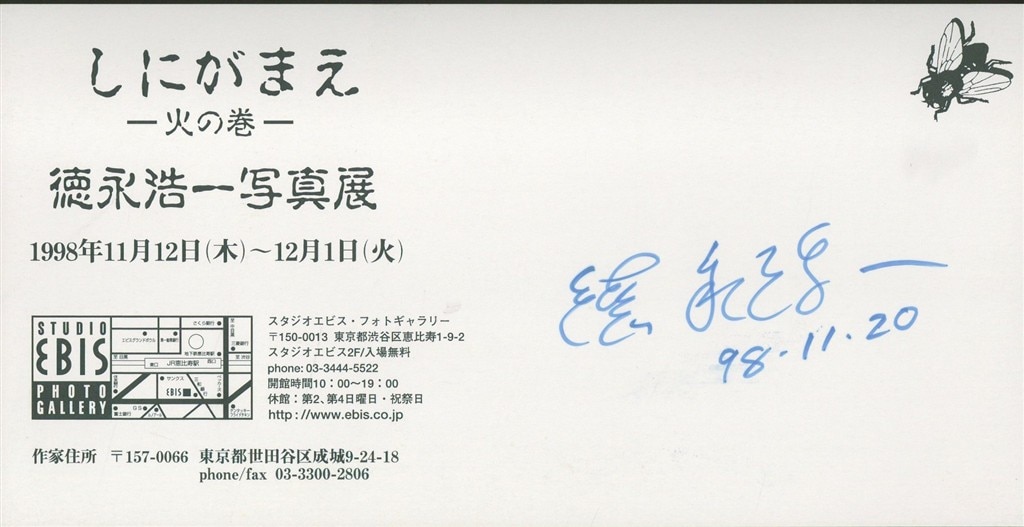 しにがまえ
―火の巻―
徳永浩一写真展
1998年11月12日(木)〜12月1日(火)
STUDIO
EBIS
PHOTO
GALLERY
さくら銀行
エビスグランドボウル
第一勧業銀行
地下鉄恵比寿駅
三菱銀行
至 目黒
JR恵比寿駅
至 渋谷
東口
西口
サンクス
EBIS
GS
富士銀行
スタジオエビス・フォトギャラリー
〒150-0013 東京都渋谷区恵比寿1-9-2
スタジオエビス2F/入場無料
phone: 03-3444-5522
開館時間10:00〜19:00
休館:第2、第4日曜日・祝祭日
http://www.ebis.co.jp
作家住所 〒157-0066 東京都世田谷区成城9-24-18
phone/fax 03-3300-2806
徳永浩一
98.11.20